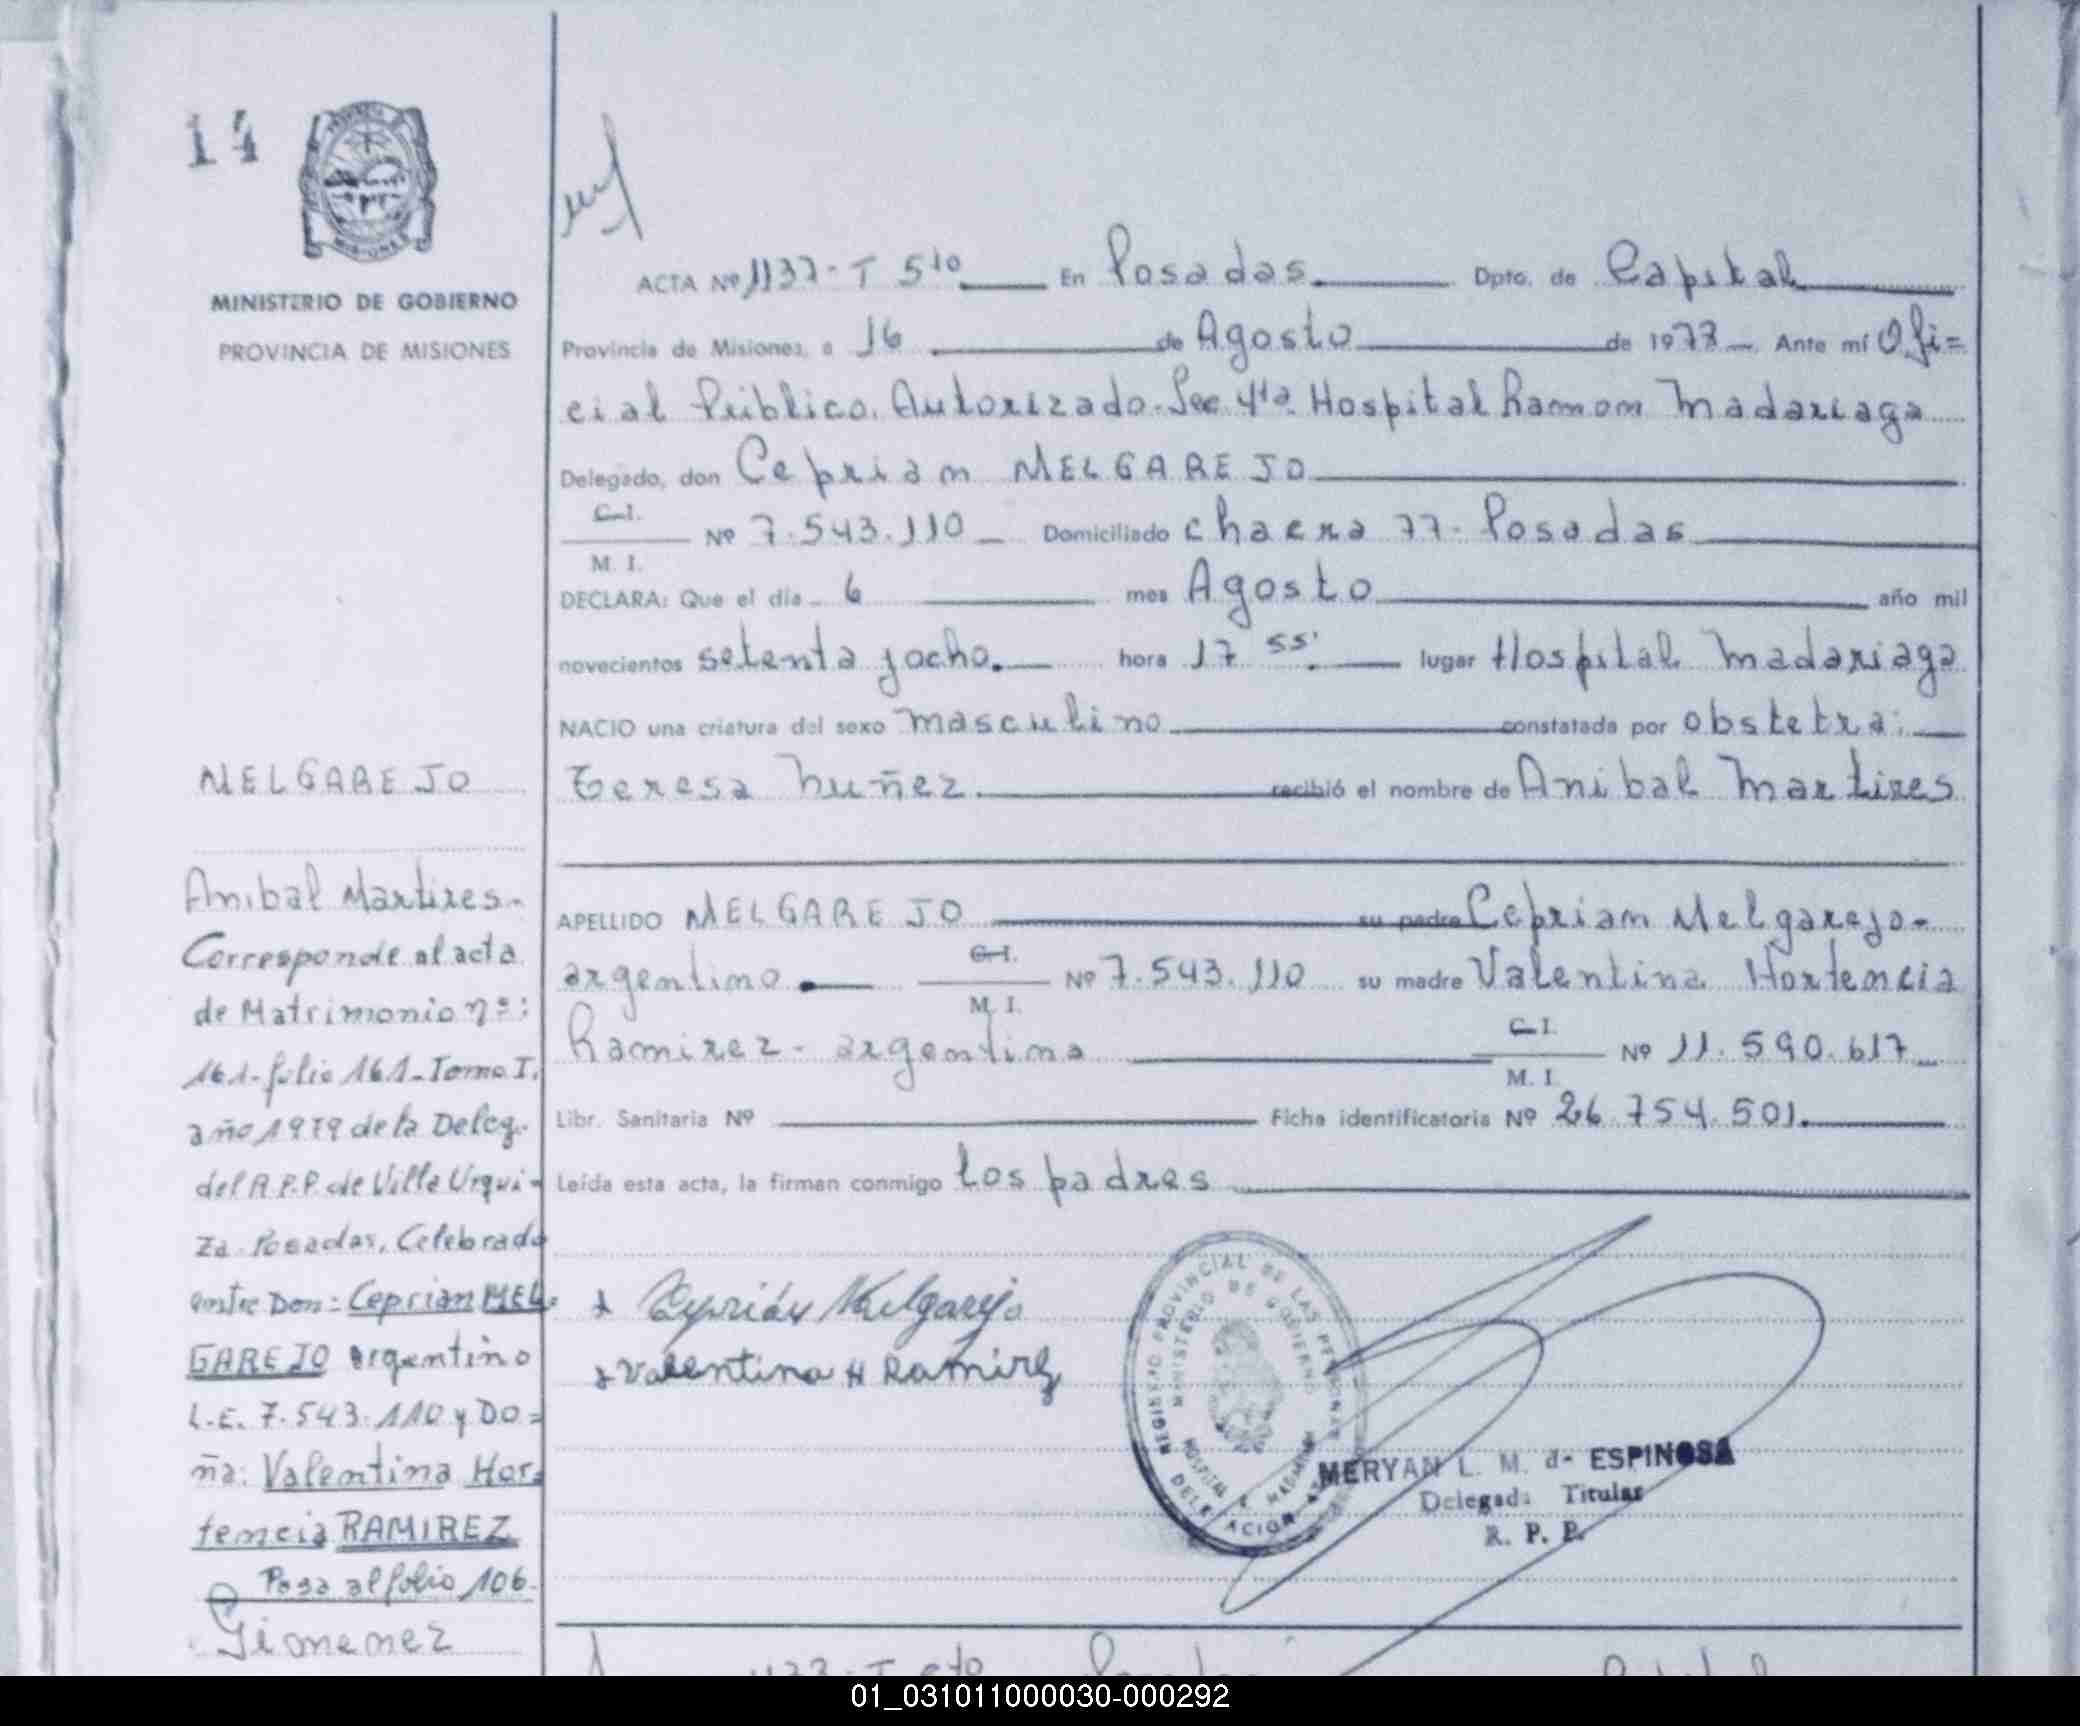 14
MINISTERIO DE GOBIERNO
PROVINCIA DE MISIONES
MELGAREJO
Anibal Martires.
Corresponde al acta
de Matrimonio nº:
161-folio 161-Tomo I.
año 1979 de la Deleg.
del R.P.P. de Villa Urqui-
za-Posadas, Celebrado
entre Don: Ceprian MEL-
GAREJO argentino
L.E. 7.543.110 y DO=
ña: Valentina Hor=
tencia RAMIREZ
Pasa al folio 106.
Gimenez
ACTA Nº 1137-T 5to En Posadas Dpto. de Capital
Provincia de Misiones, a 16 de Agosto de 1978 Ante mí Ofi=
cial Público. Autorizado. Sec 4ta. Hospital Ramon Madariaga
Delegado, don Ceprian MELGAREJO
C.I.
M. I. Nº 7.543.110 Domiciliado chacra 77- Posadas
DECLARA: Que el día 6 mes Agosto año mil
novecientos setenta y ocho. hora 17 55' lugar Hospital Madariaga
NACIO una criatura del sexo masculino constatada por obstetra:
Teresa Nuñez. recibió el nombre de Anibal Martires
APELLIDO MELGAREJO su padre Ceprian Melgarejo-
argentino C.I.
M. I. Nº 7.543.110 su madre Valentina Hortencia
Ramirez- argentina C.I.
M. I. Nº 11.590.617
Libr. Sanitaria Nº Ficha identificatoria Nº 26.754.501.
Leída esta acta, la firman conmigo los padres
Ceprián Melgarejo
Valentina H Ramirez
REGISTRO PROVINCIAL DE LAS PERSONAS
MINISTERIO DE GOBIERNO
HOSPITAL R. MADARIAGA
DELEGACION
MERYAN L. M. de ESPINOSA
Delegada Titular
R. P. P.
01_031011000030-000292